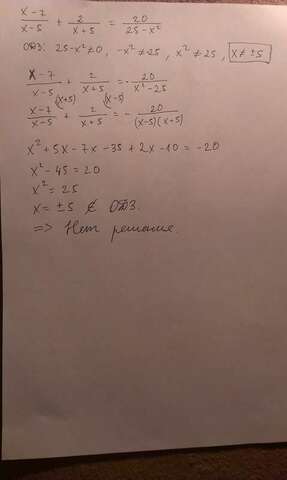 (x-7)/(x-5) + 2/(x+5) = 20/(25-x²)
ОДЗ: 25-x²≠0, -x²≠25, x²≠25, x≠±5
(x-7)/(x-5) + 2/(x+5) = -20/(x²-25)
(x-7)/(x-5) (x+5) + 2/(x+5) (x-5) = - 20/((x-5)(x+5))
x²+5x-7x-35+2x-10=-20
x²-45=20
x²=25
x=±5 ∉ ОДЗ.
=> Нет решения.